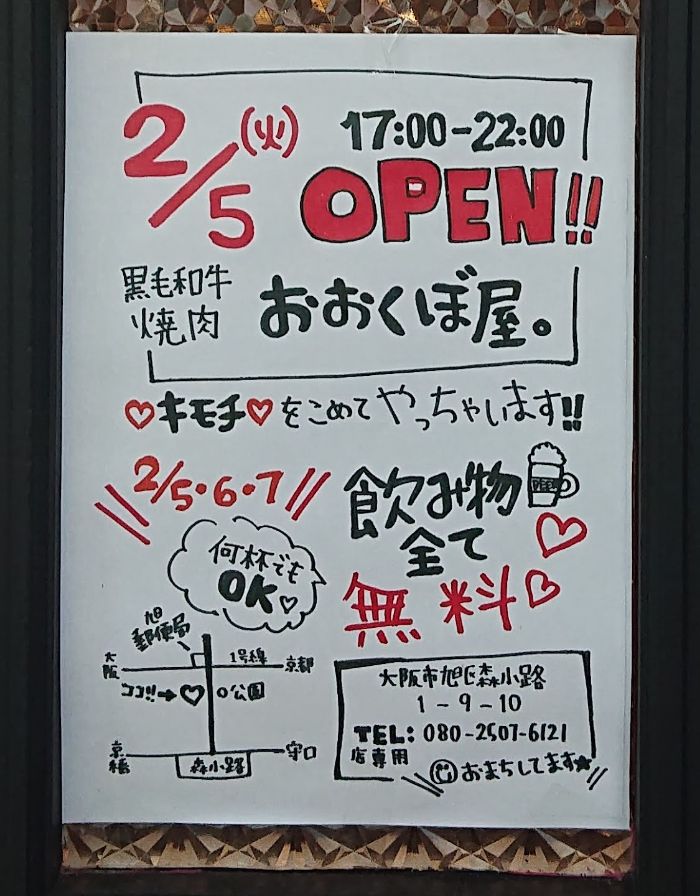 2/5(火) 17:00-22:00
OPEN!!
黒毛和牛
焼肉
おおくぼ屋。
♡キモチ♡をこめてやっちゃいます!!
2/5・6・7
飲み物
全て
無料
何杯でも
OK♡
BEER
旭
郵便局
大阪
1号線
京都
ココ!!→♡
公園
京橋
守口
森小路
大阪市旭区森小路
1-9-10
TEL: 080-2507-6121
店専用
おまちしてます★